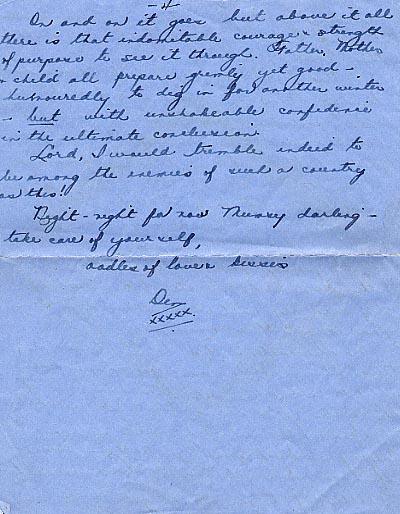 - 4
On and on it goes but above it all
there is that indomitable courage & strength
of purpose to see it through. Father, Mother
& child all prepare grimly yet good-
humouredly to dig in for another winter
- but with unshakeable confidence
in the ultimate conclusion
Lord, I would tremble indeed to
be among the enemies of such a country
as this!
Night-night for now Mumsy darling -
take care of yourself,
oodles of love &
xxxxx.